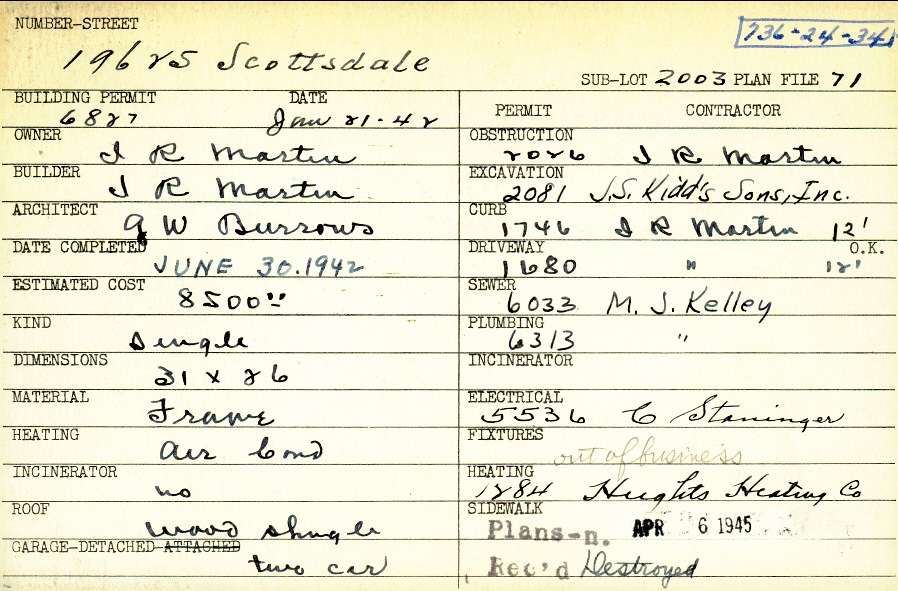 NUMBER-STREET
736-24-34
19625 Scottsdale
SUB-LOT 2003 PLAN FILE 71
BUILDING PERMIT DATE
6827 Jan 21-42
OWNER
I R Martin
BUILDER
I R Martin
ARCHITECT
G W Burrows
DATE COMPLETED
JUNE 30.1942
ESTIMATED COST
8500"
KIND
Single
DIMENSIONS
31 x 26
MATERIAL
Frame
HEATING
Air Cond
INCINERATOR
no
ROOF
wood shingle
GARAGE-DETACHED-ATTACHED
two car
PERMIT CONTRACTOR
OBSTRUCTION
2026 I R Martin
EXCAVATION
2081 J.S. Kidd's Sons, Inc.
CURB
1746 I R Martin 12'
DRIVEWAY O.K.
1680 " 12'
SEWER
6033 M. J. Kelley
PLUMBING
6313 "
INCINERATOR
ELECTRICAL
5536 C Staninger
FIXTURES
out of business
HEATING
1284 Heights Heating Co
SIDEWALK
Plans-n. APR 6 1945
Rec'd Destroyed